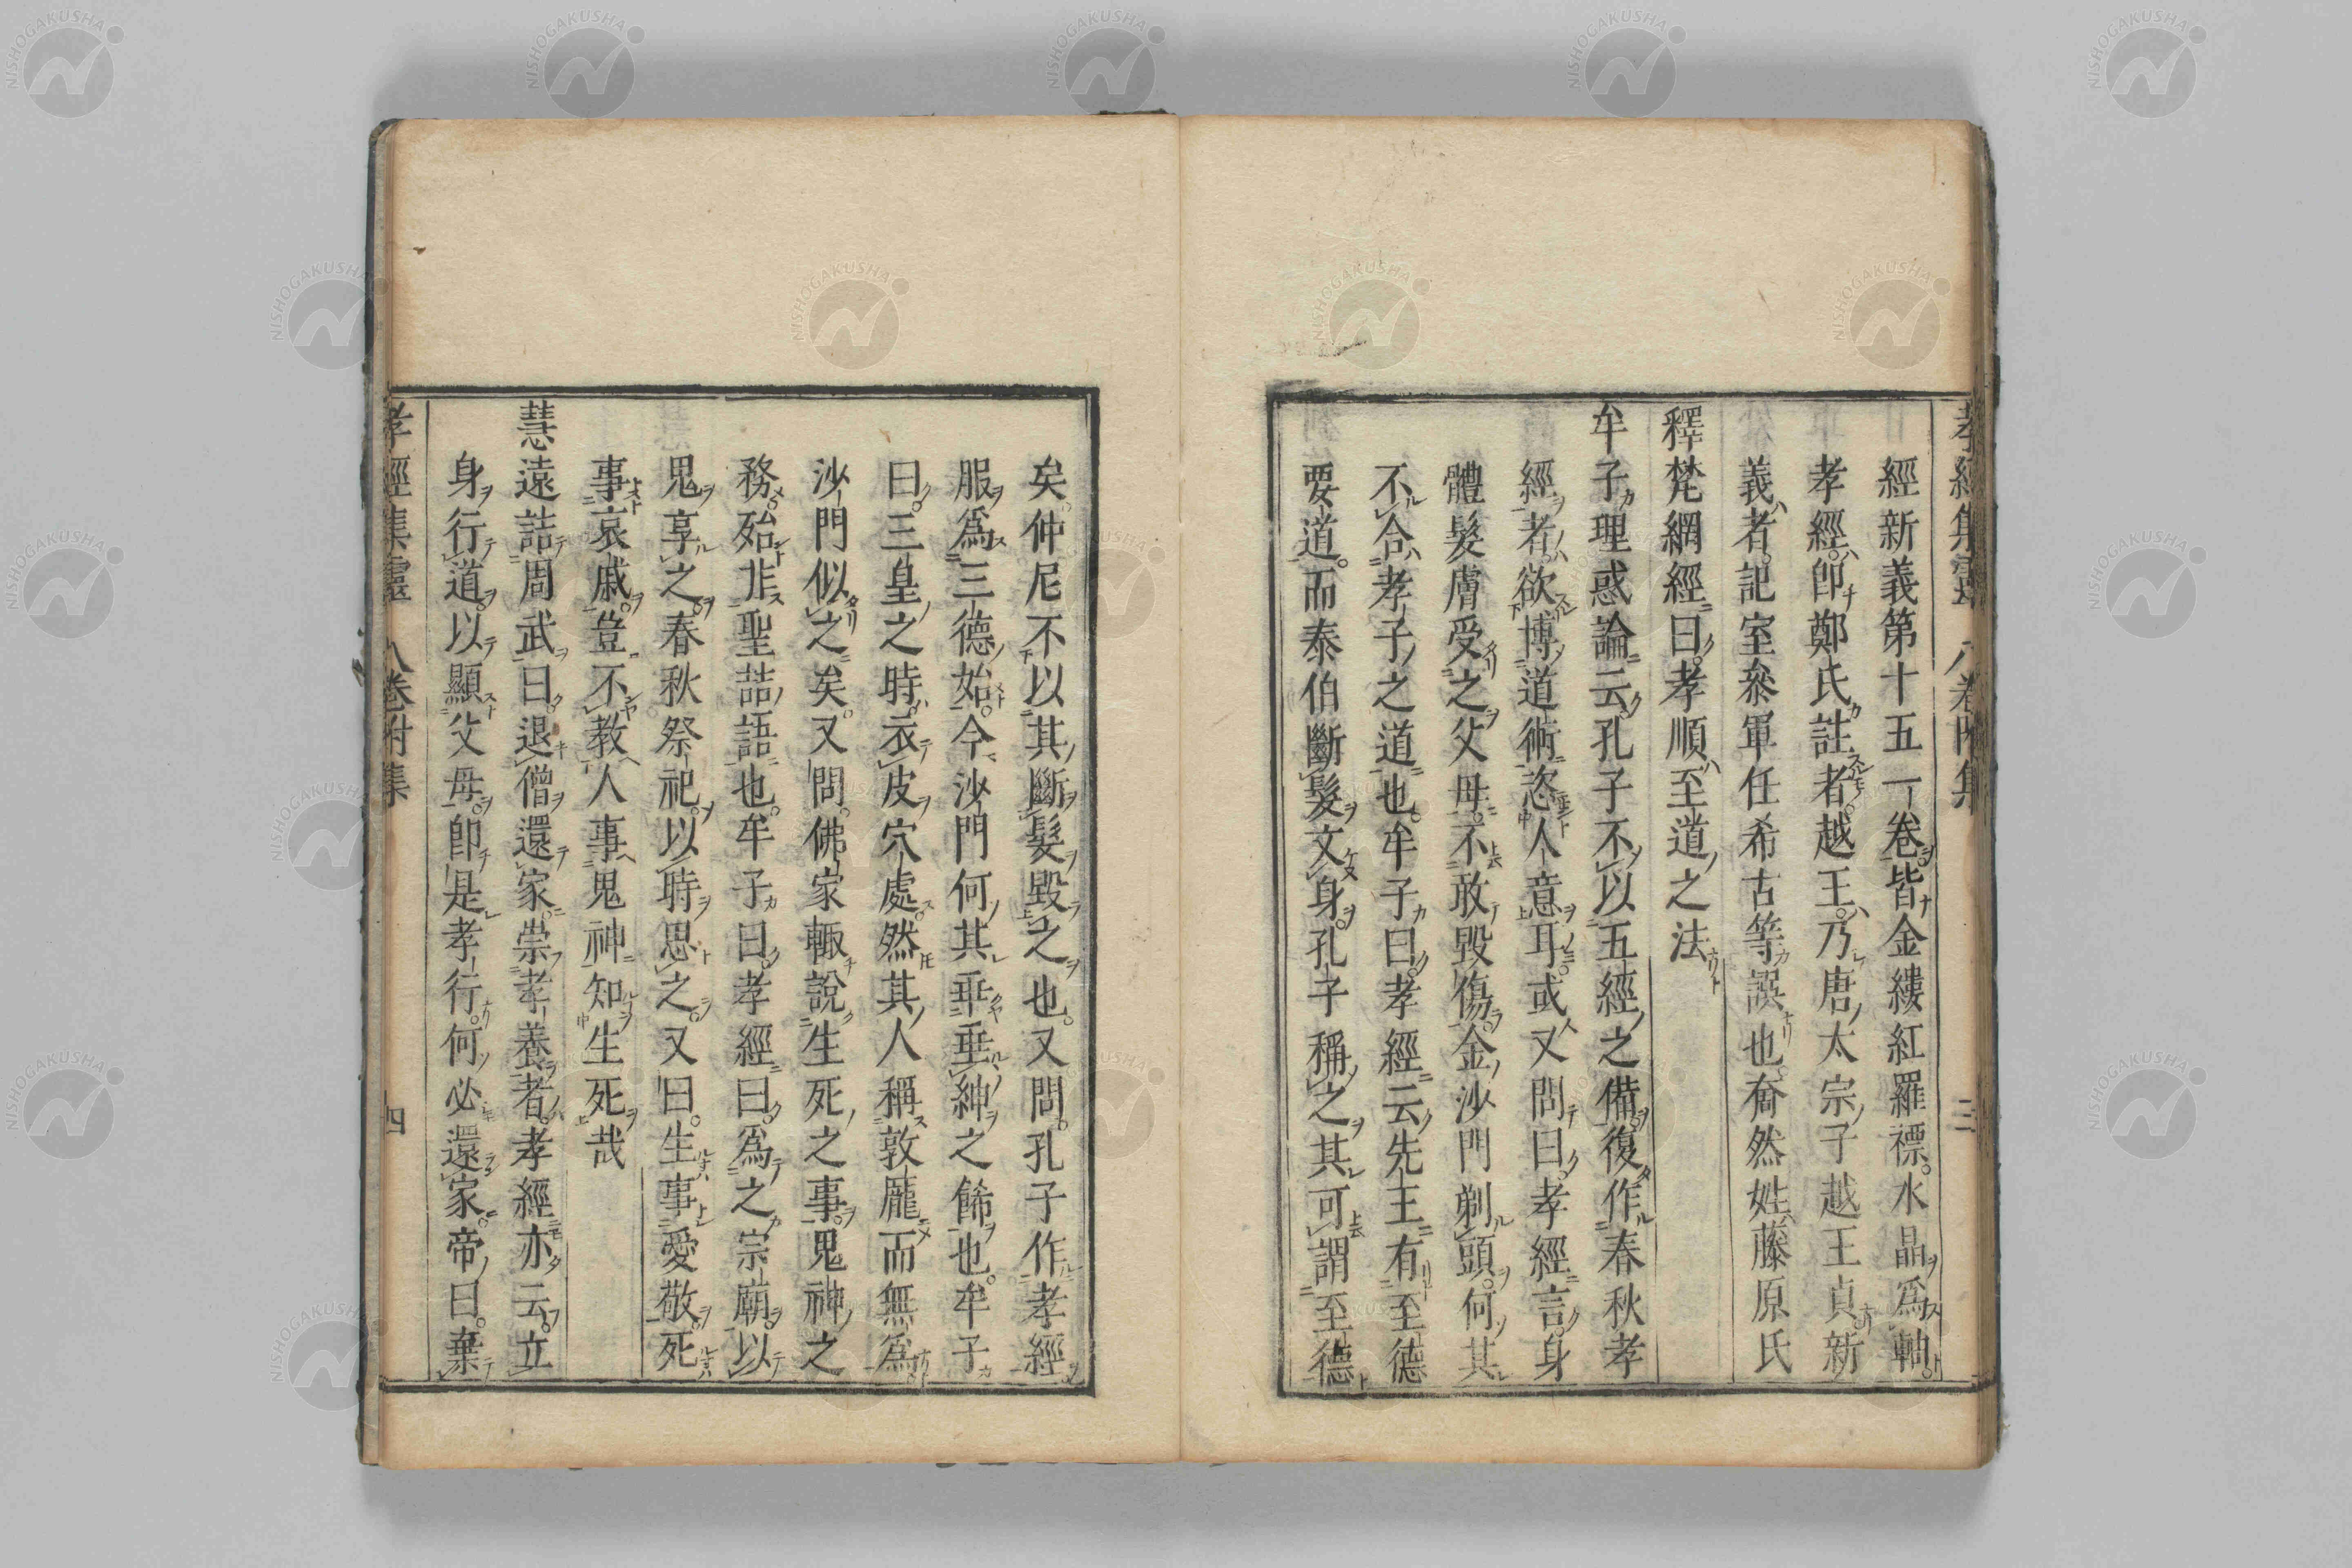 經新義第十五一卷皆金縷紅羅褾水晶爲軸
孝經即鄭氏註者越王乃唐太宗子越王貞新
義者記室叅軍任希古等譔也奝然姓藤原氏
釋梵網經曰孝順至道之法
牟子理惑論云孔子不以五經之備復作春秋孝
經者欲博道術恣人意耳或又問曰孝經言身
體髮膚受之父母不敢毀傷金沙門剃頭何其
不合孝子之道也牟子曰孝經云先王有至德
要道而泰伯斷髮文身孔子稱之其可謂至德
矣仲尼不以其斷髮毀之也又問孔子作孝經
服爲三德始今沙門何其乖垂紳之餙也牟子
曰三皇之時衣皮穴處然其人稱敦厖而無爲
沙門似之矣又問佛家輙說生死之事鬼神之
務殆非聖喆語也牟子曰孝經曰爲之宗廟以
鬼享之春秋祭祀以時思之又曰生事愛敬死
事哀戚豈不教人事鬼神知生死哉
慧遠詰周武曰退僧還家崇孝養者孝經亦云立
身行道以顯父母即是孝行何必還家帝曰棄
孝經集靈 八卷附集 四